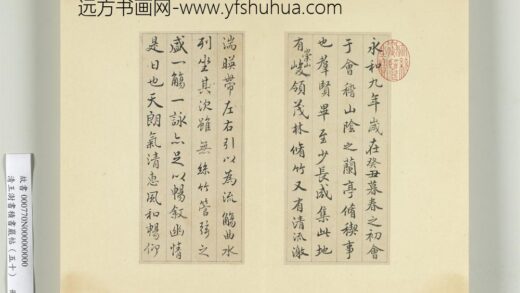 远方书画网-www.yfshuhua.com
永和九年歲在癸丑暮春之初會
于會稽山陰之蘭亭脩禊事
也羣賢畢至少長咸集此地
有崇山峻領茂林脩竹又有清流激
湍暎帶左右引以為流觴曲水
列坐其次雖無絲竹管弦之
盛一觴一詠亦足以暢敘幽情
是日也天朗氣清惠風和暢仰
故書 000770N000000000
清王澍書積書巖帖(五十)